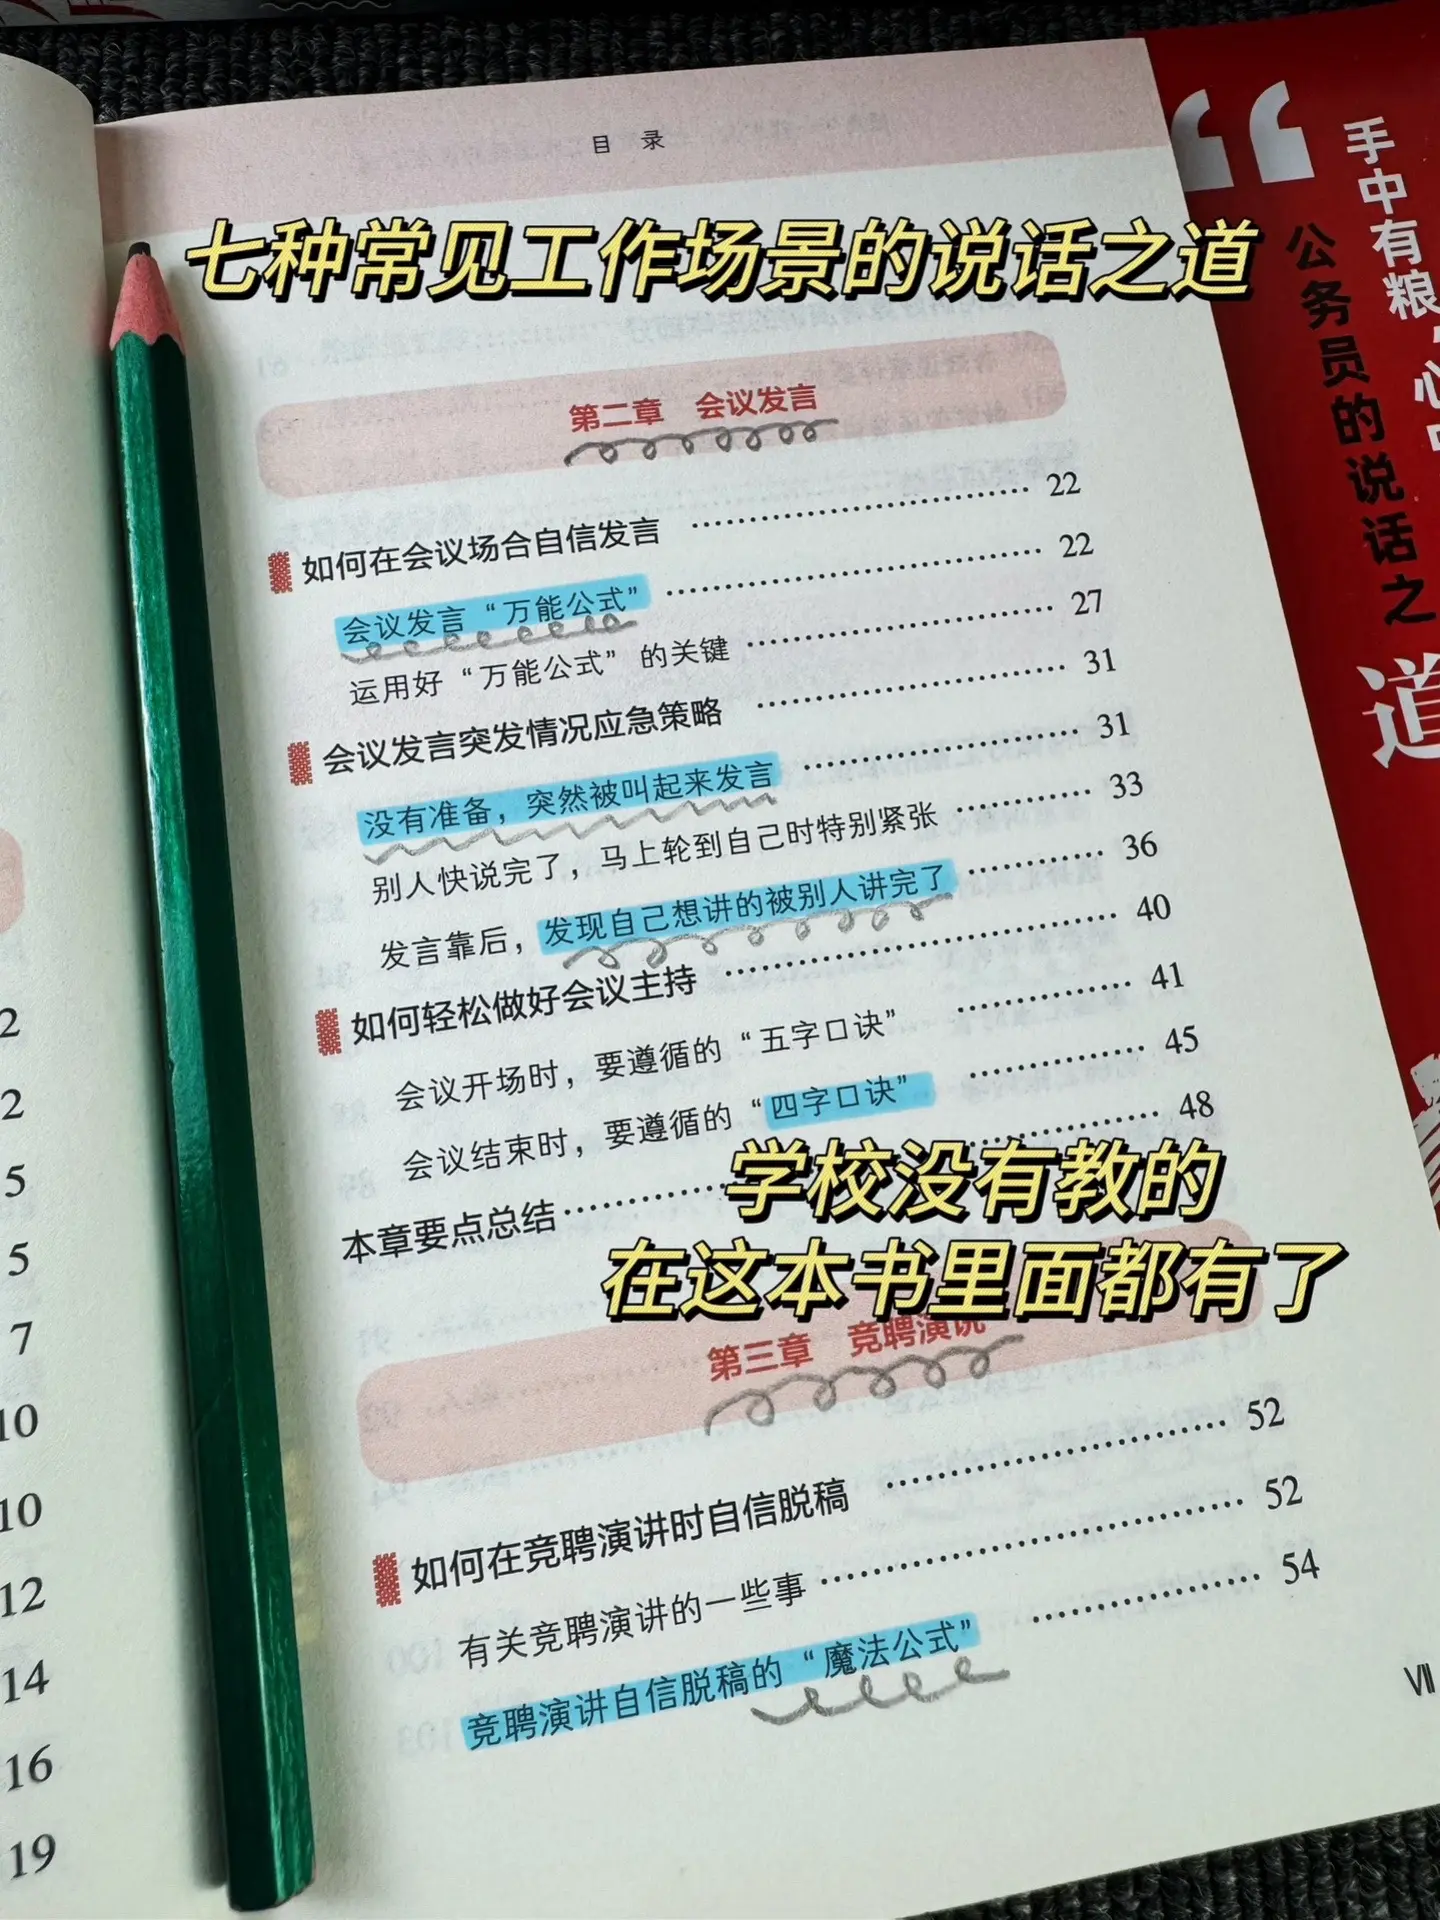 目 录
七种常见工作场景的说话之道
第二章 会议发言
如何在会议场合自信发言 22
会议发言“万能公式” 22
运用好“万能公式”的关键 27
会议发言突发情况应急策略 31
没有准备，突然被叫起来发言 31
别人快说完了，马上轮到自己时特别紧张 33
发言靠后，发现自己想讲的被别人讲完了 36
如何轻松做好会议主持 40
会议开场时，要遵循的“五字口诀” 41
会议结束时，要遵循的“四字口诀” 45
本章要点总结 48
学校没有教的
在这本书里面都有了
第三章 竞聘演说
如何在竞聘演讲时自信脱稿 52
有关竞聘演讲的一些事 52
竞聘演讲自信脱稿的“魔法公式” 54
VII
2
2
5
5
7
10
10
12
14
16
19
“
手中有粮，心中
公务员的说话之
道